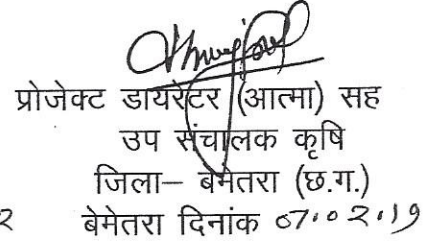 प्रोजेक्ट डायरेटर (आत्मा) सह
उप संचालक कृषि
जिला– बेमेतरा (छ.ग.)
बेमेतरा दिनांक 07.02.19